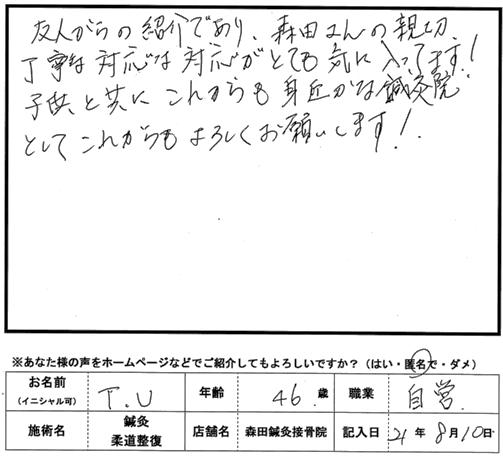 友人からの紹介であり、森田さんの親切、
丁寧な対応な対応がとても気に入ってます！
子供と共にこれからも身近かな鍼灸院
としてこれからもよろしくお願いします！
※あなた様の声をホームページなどでご紹介してもよろしいですか？（はい・匿名で・ダメ）
お名前（イニシャル可） T.U 年齢 46 歳 職業 自営
施術名 鍼灸 柔道整復 店舗名 森田鍼灸接骨院 記入日 21 年 8 月 10 日